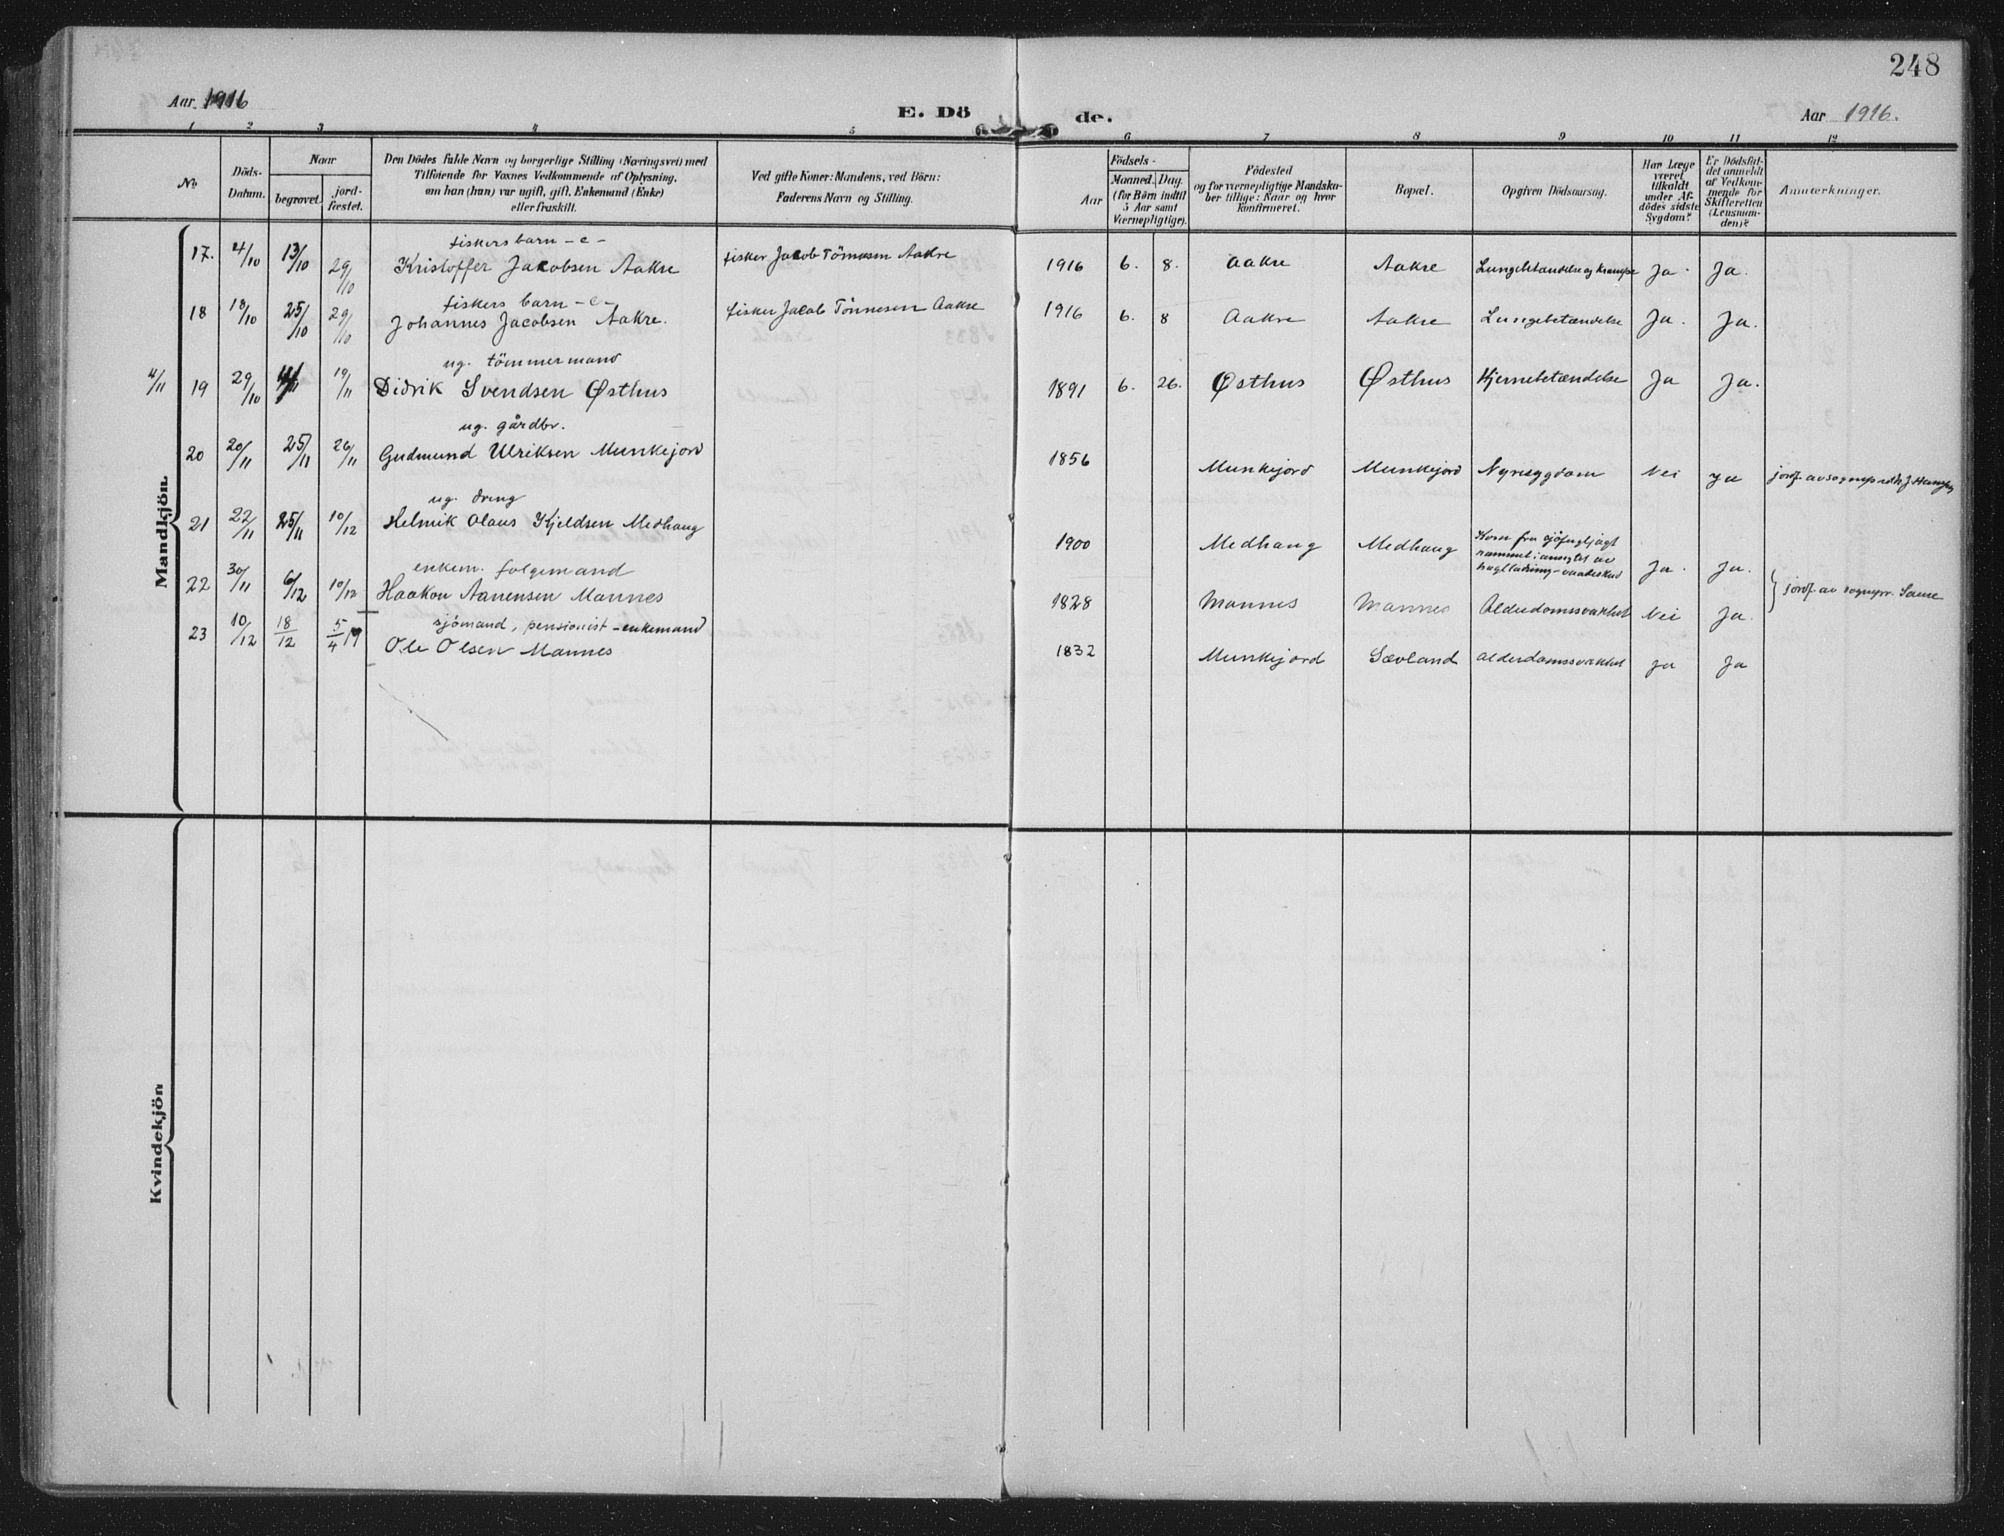 248
Aar 1916
E. Dö
de.
Aar 1916.
1 2 3 4 5 6 7 8 9 10 11 12
No
Döds-
Datum.
Naar
begravet.
jord-
fæstet.
Den Dödes fulde Navn og borgerlige Stilling (Næringsvei) med
Tilföiende for Voxnes Vedkommende af Oplysning,
om han (hun) var ugift, gift, Enkemand (Enke)
eller fraskilt.
Ved gifte Koner: Mandens, ved Börn:
Faderens Navn og Stilling.
Födsels-
Aar
Maaned. Dag.
(for Börn indtil
5 Aar samt
Værnepligtige).
Födested
og for værnepligtige Mandska-
ber tillige: Naar og hvor
konfirmeret.
Bopæl.
Opgiven Dödsaarsag.
Har Læge
været
tilkaldt
under Af-
dödes sidste
Sygdom?
Er Dödsfal-
det anmeldt
af Vedkom-
mende for
Skifteretten
(Lensman-
den)?
Anmerkninger.
Mandkjön.
17. 4/10 13/10 29/10 fiskers barn - e -
Kristoffer Jacobsen Aakre fisker Jacob Tönnesen Aakre 1916 6. 8. Aakre Aakre Lungebetændelse og krampe Ja. Ja.
18 18/10 25/10 29/10 fiskers barn - e -
Johannes Jacobsen Aakre. fisker Jacob Tönnesen Aakre 1916 6. 8 Aakre Aakre Lungebetændelse Ja. Ja.
4/11 19 29/10 4/11 19/11 ug. tömmermand
Didrik Svendsen Østhus 1891 6. 26. Østhus Østhus Hjernebetændelse Ja Ja.
20 20/11 25/11 26/11 ug. gårdbr.
Gudmund Ulriksen Munkejord 1856 Munkejord Munkejord Nyresygdom Nei ja jordf. av sogneprest
21 22/11 25/11 10/12 ug. dreng
Helmik Olaus Kjeldsen Medhaug 1900 Medhaug Medhaug Kom fra sjöfugljagt
rammet i ansigtet av
haglladning - vaadeskud Ja. Ja.
22 30/11 6/12 10/12 enkem. folgemand
Haakon Aanensen Mannes 1828 Mannes Mannes Alderdomssvakhet Nei Ja. jordf. av sognepr.
23 10/12 18/12 5/4 17 sjömand, pensionist - enkemand
Ole Olsen Mannes 1832 Munkejord Sævland alderdomssvakhet ja Ja
Kvindekjön